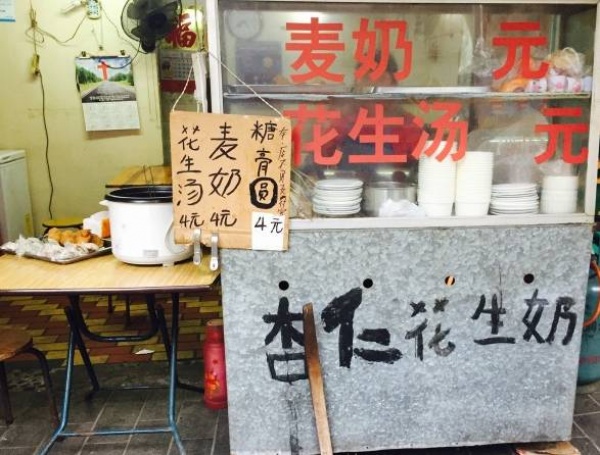 福
麦奶 元
花生汤 元
糖膏圆 4元
麦奶 4元
花生汤 4元
杏仁花生奶